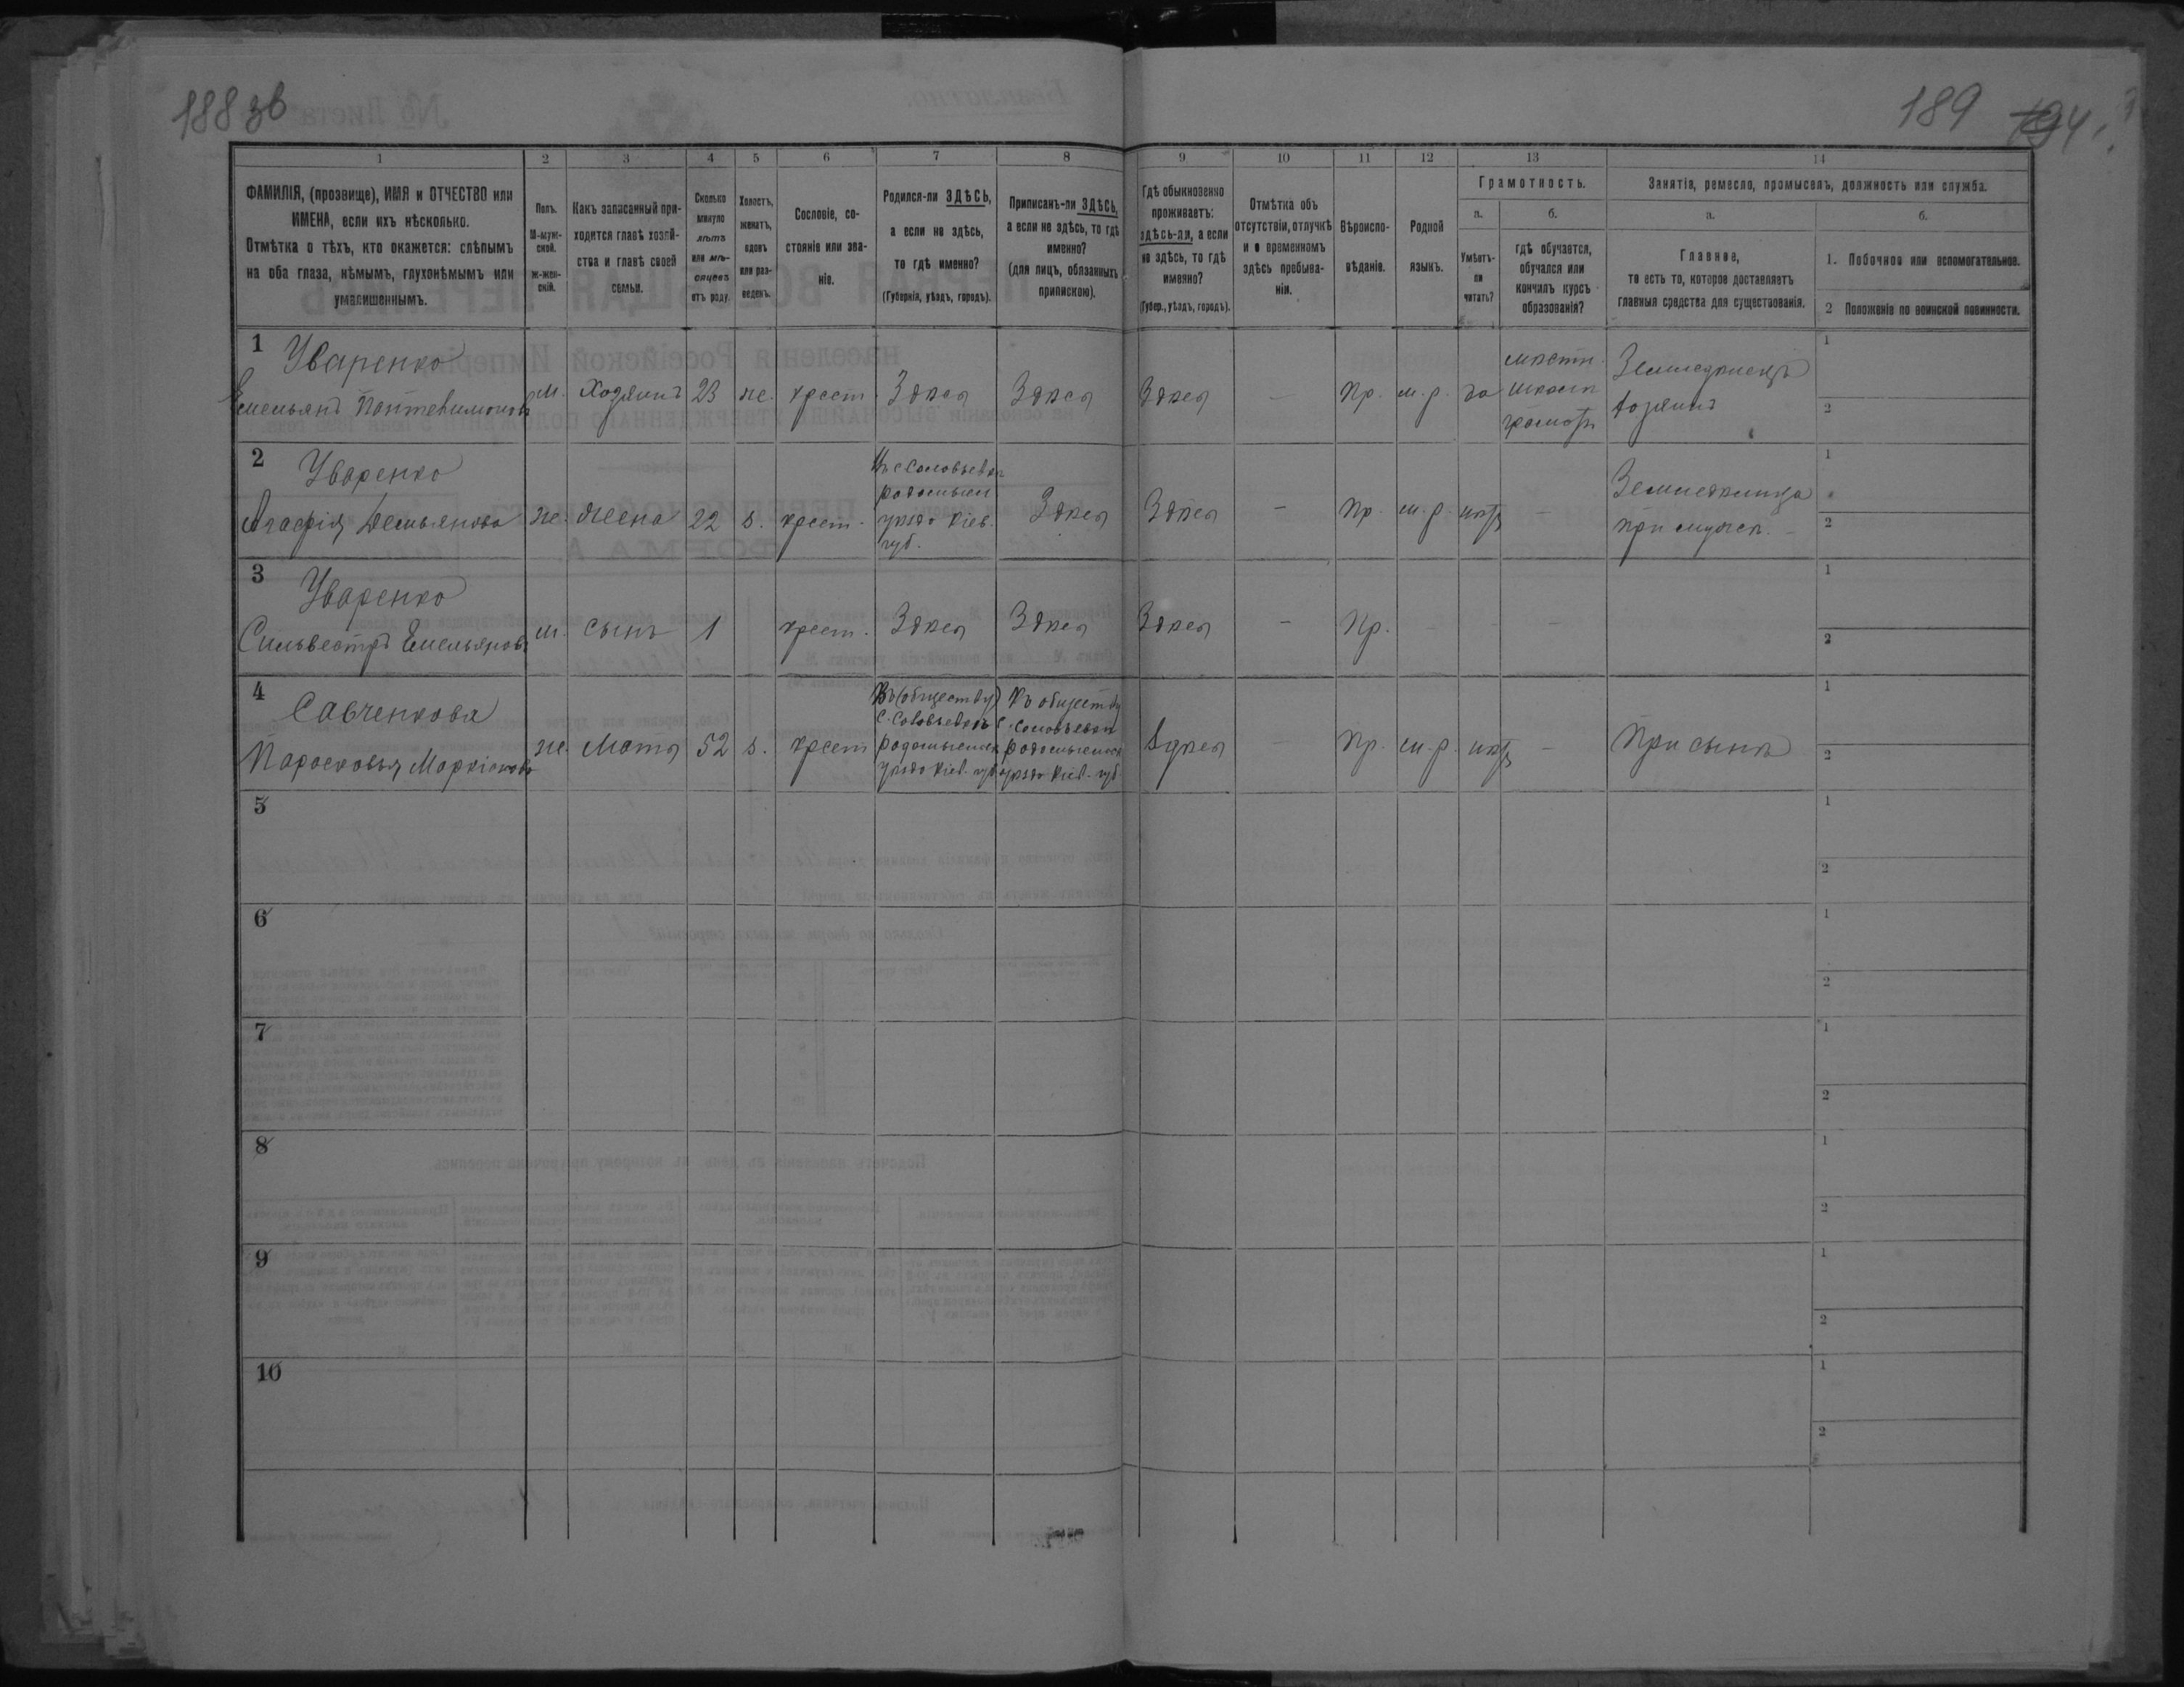 188 зв
189
194.
1
2
3
4
5
6
7
8
9
10
11
12
13
14
ФАМИЛІЯ, (прозвище), ИМЯ и ОТЧЕСТВО или
ИМЕНА, если ихъ нѣсколько.
Отмѣтка о тѣхъ, кто окажется: слѣпымъ
на оба глаза, нѣмымъ, глухонѣмымъ или
умалишеннымъ.
Полъ.
М-муж-
ской.
ж-жен-
скій.
Какъ записанный при-
ходится главѣ хозяй-
ства и главѣ своей
семьи.
Сколько
минуло
лѣтъ
или мѣ-
сяцевъ
отъ роду.
Холостъ,
женатъ,
вдовъ
или раз-
веденъ.
Сословіе, со-
стояніе или зва-
ніе.
Родился-ли ЗДѢСЬ,
а если не здѣсь,
то гдѣ именно?
(Губернія, уѣздъ, городъ).
Приписанъ-ли ЗДѢСЬ,
а если не здѣсь, то гдѣ
именно?
(для лицъ, обязанныхъ
припискою).
Гдѣ обыкновенно
проживаетъ:
здѣсь-ли, а если
не здѣсь, то гдѣ
именно?
(Губер., уѣздъ, городъ).
Отмѣтка объ
отсутствіи, отлучкѣ
и о временномъ
здѣсь пребыва-
ніи.
Вѣроиспо-
вѣданіе.
Родной
языкъ.
Грамотность.
а.
б.
Умѣетъ-
ли
читать?
гдѣ обучается,
обучался или
кончилъ курсъ
образованія?
Занятія, ремесло, промыселъ, должность или служба.
а.
б.
Главное,
то есть то, которое доставляетъ
главныя средства для существованія.
1. Побочное или вспомогательное.
2 Положеніе по воинской повинности.
1
Уваренко
Емельянъ Пантелимоновъ
м.
Хозяинъ
23
же.
крест.
Здѣся
Здѣся
Здѣся
-
Пр.
м. р.
да
мѣстн.
школѣ
грамотѣ
Земледѣлецъ
хозяинъ
1
2
2
Уваренко
Агафія Демьянова
же.
жена
22
з.
крест.
Въ с Соловьевкѣ
Радомысл
уѣзда Кіев.
губ.
Здѣся
Здѣся
-
Пр.
м. р.
нѣтъ
-
Земледѣлица
при мужѣ. -
1
2
3
Уваренко
Сильвестръ Емельяновъ
м.
сынъ
1
крест.
Здѣся
Здѣся
Здѣся
-
Пр.
-
-
-
1
2
4
Савченкова
Парасковья Маркіанова
же.
Мать
52
з.
крест
Въ (обществу)
С. Соловьевкѣ
Радомысльск
уѣзда Кіев. губ
Къ обществу
с. Соловьевки
Радомысльск
уѣзда Кіев. губ.
Здѣся
-
Пр.
м. р.
нѣтъ
-
При сынѣ
1
2
5
1
2
6
1
2
7
1
2
8
1
2
9
1
2
10
1
2